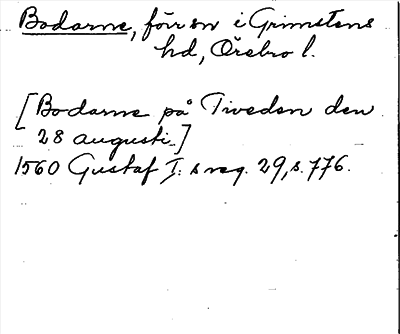 Bodarne, förr sn i Grimstens
hd, Örebro l.
[Bodarne på Tiveden den
28 augusti.]
1560 Gustaf I:s reg. 29, s. 776.